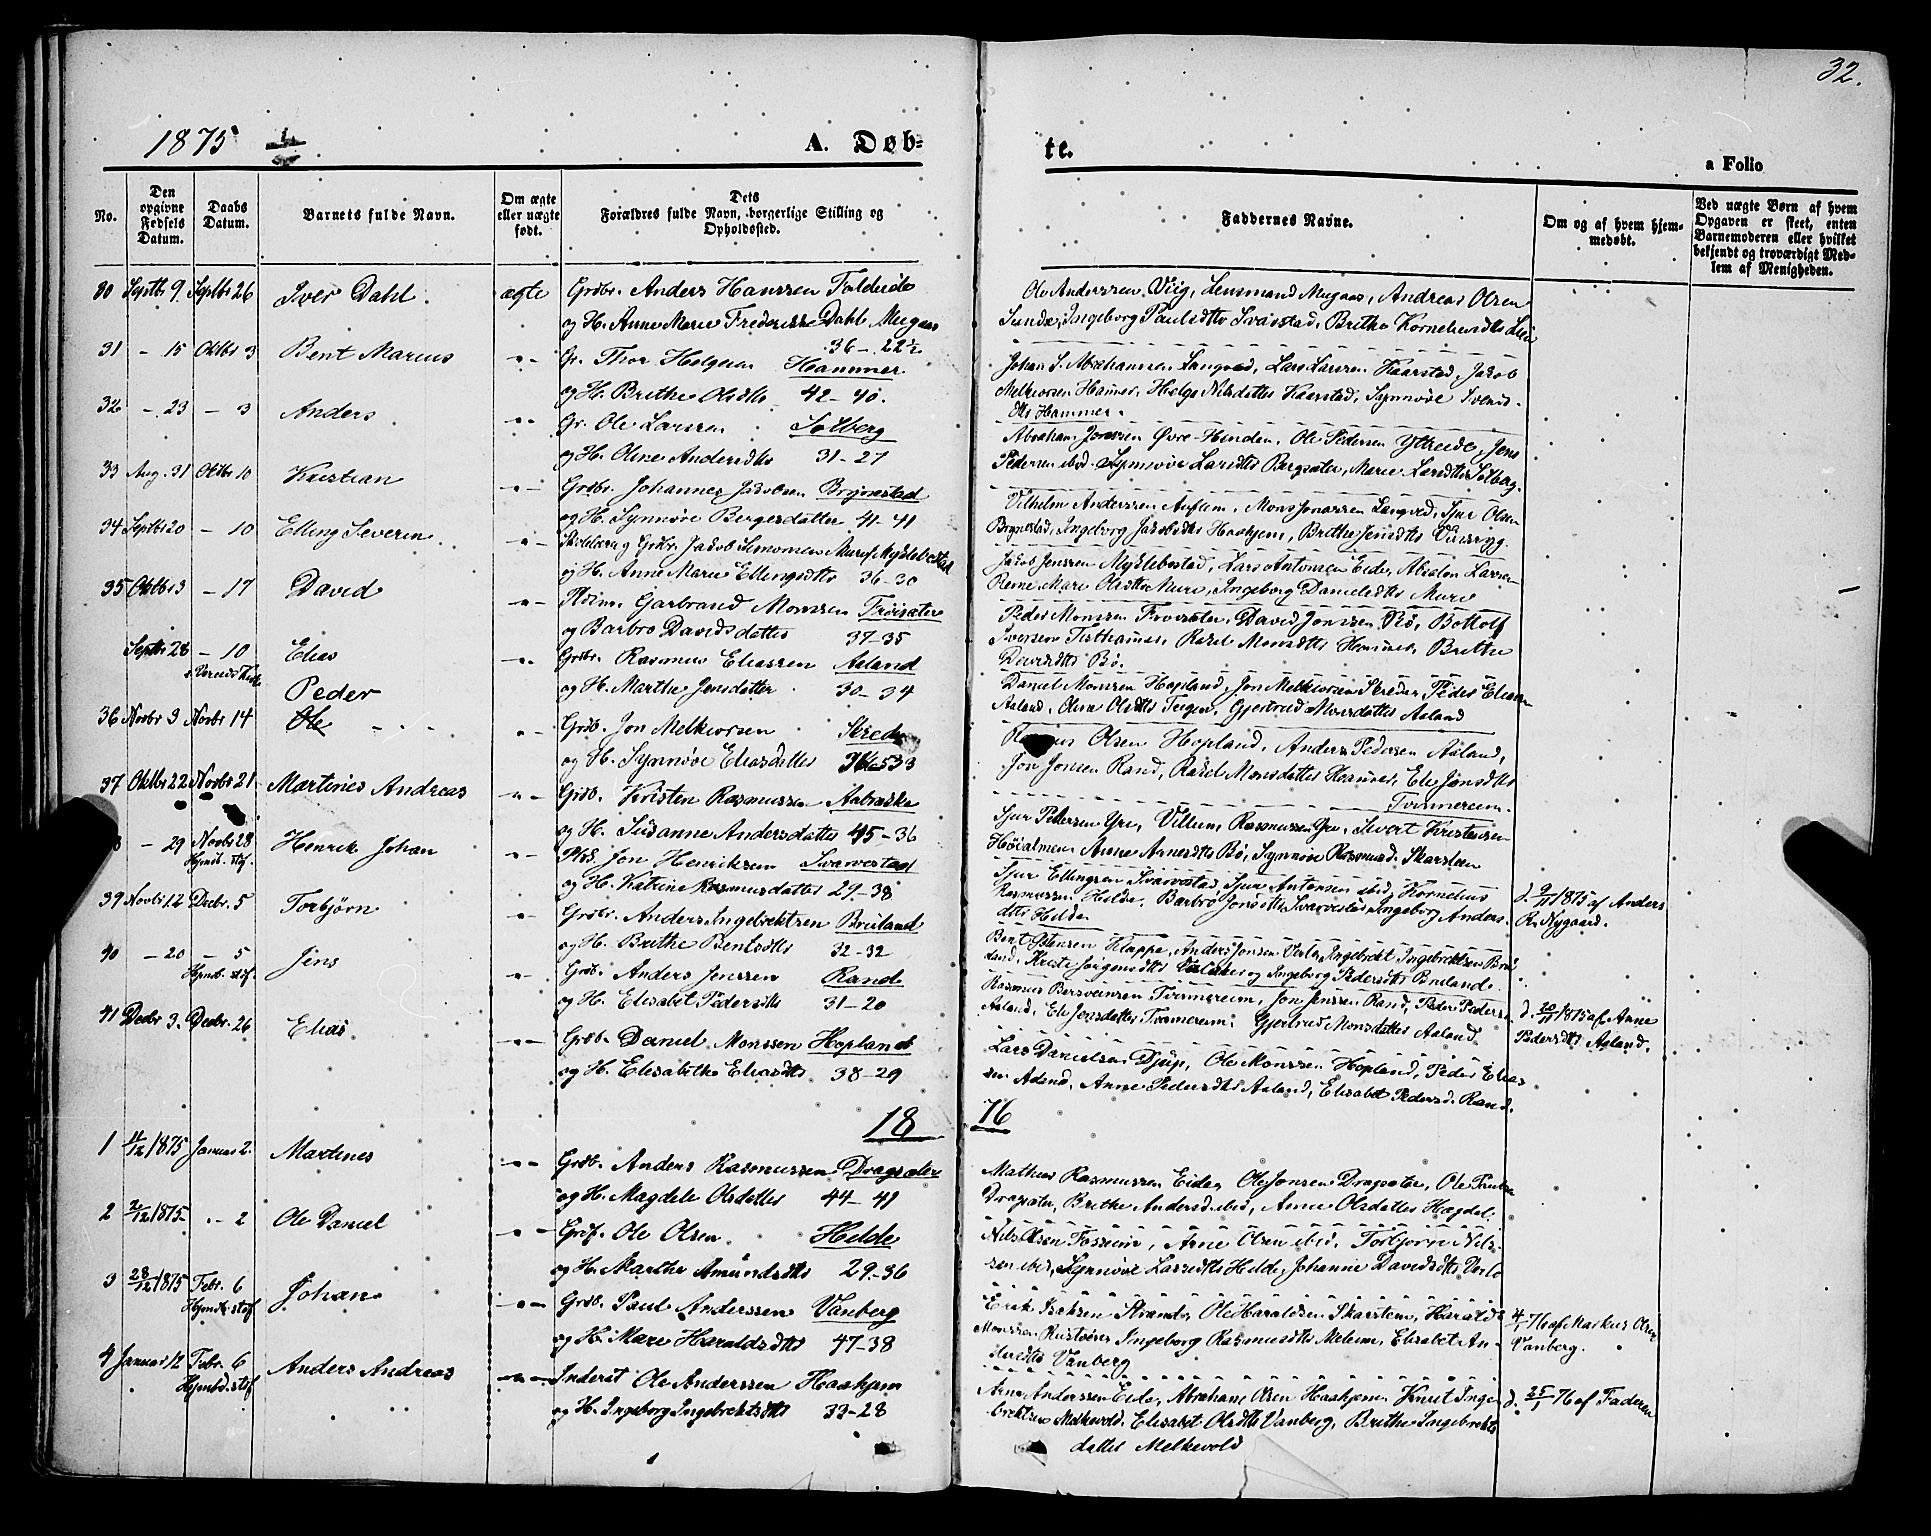 32.
1875
A. Døb-
te.
a Folio
No.
Den opgivne Fødsels Datum.
Daabs Datum.
Barnets fulde Navn.
Om ægte eller uægte født.
Dets Forældres fulde Navn, borgerlige Stilling og Opholdssted.
Faddernes Navne.
Om og af hvem hjemmedøbt.
Ved uægte Børn af hvem Opgaven er skeet, enten Barnemoderen eller hvilket bekjendt og troværdigt Medlem af Menigheden.
30 Septbr 9. Septbr 26 Iver Dahl. ægte Grdbr. Anders Hanssen
og H. Anne Marie Frederikke Dahl Mugaas
36 - 22½
Ole Anderssen Viig, Lensmand Mugaas, Andreas Olsen
Sunde, Ingeborg Paulsdtr Svarstad, Brithe
31 - 15 Oktbr 3 Bent Marius " Gr. Thor Helgesen Hammer
og H. Brithe Olsdtr 42 - 40.
Johan S. Abrahamsen Langved, Lars Larssen Kaarstad, Jakob
Melkiorsen Hamer, Helge Nilsdatter Kaarstad, Synnøve Svends-
dtr Hammer.
32 - 23 - 3 Anders " Gr. Ole Larssen Solberg
og H. Oline Andersdtr 31 - 27
Abraham Jonssen Øvre-Hinden, Ole Pederssen Ytreide, Jens
Pedersen ibid. Synnøve Larsdtr Bergsæter, Marie Larsdtr Solberg.
33 Aug. 31 Oktbr 10 Kristian " Grdbr. Johannes Jacobsen Brynestad
og H. Synnøve Bergesdatter 41 - 41
Vilhelm Anderssen Auflem, Mons Jonassen Langved, Sjur Olsen
Brynestad, Ingeborg Jakobsdtr Haakjem, Brithe Jensdtr
34 Septbr 20 - 10 Elling Severin. " Skolelærer og Grdbr. Jacob Simonsen Mure/Myklebostad
og H. Anne Marie Ellingsdtr 36 - 30
Jakob Jenssen Myklebostad, Lars Antonsen Eide, Absalon Larsen
Reme, Mari Olsdtr Mure, Ingeborg Danielsdtr Mure
35 Oktbr 3 - 17 David " Garbrand Monssen Frøisæter
og Barbro Davidsdatter 37 - 35
Peder Monssen Frøisæter, David Jonssen Bø, Bottolf
Iverssen Risthamer, Rasel Monsdtr Hamer, Brithe
Davidsdtr Bø.
Septbr 28 - 10 Elias " Grdbr. Rasmus Eliassen Aaland
og H. Marthe Jensdatter 30 - 34
Daniel Monssen Hopland, Jon Melkiorsen Skrede, Peder Eliassen
Aaland, Oline Olsdtr Teigen, Gjertrud Monsdatter Aaland
36 Novbr 3 Novbr 14 Peder Ole " Grdb. Jon Melkiorsen Skrede
og H. Synnøve Eliasdatter
Olsen Hopland, Anders Pedersen Aaland,
Jon Jonsen Rand, Rasel Monsdatter Hamer, Eli Jonsdtr
Tvinnereim.
37 Oktbr 22 Novbr 21 Martines Andreas " Grdb. Kristen Rasmussen Aabrekke
og H. Susanne Andersdatter 45 - 36
Sjur Pedersen Yri, Villum Rasmussen Yri, Sivert Kristensen
Høialmen, Anne Arnesdtr Bø, Synnøve Rasmusd. Skarsteen
8 - 29 Novbr 28 Henrik Johan " Plds. Jon Henriksen Svarvestad
Hjmdb. stdf.
og H. Katrine Rasmusdatter 29 - 38
Sjur Ellingsen Svarvestad, Sjur Antonsen ibid, Kornelius
Rasmussen Helde, Barbro Jonsdtr Svarvestad, Ingeborg Anders-
dtr Helde
d. 9/11 1875 af Anders
R. Nygaard.
39 Novbr 12 Decbr. 5 Torbjørn " Grdbr. Anders Ingebrektsen Breiland
og H. Brithe Bentsdtr 32 - 32
Bent Østensen Klappe, Anders Jonsen Verlo, Ingebrekt Ingebrektsen Brei-
land, Kristi Jørgensdtr og Ingeborg Pedersdtr Breiland.
40 - 20 - 5 Jens " Grdb. Anders Jenssen Rand
Hjmdb. stdf.
og H. Elisabet Pedersdtr 31 - 20
Rasmus Bersveinsen Tvinnereim, Jon Jenssen Rand, Peder Pedersen
Aaland, Eli Jonsdatter Tvinnereim, Gjertrud Monsdatter Aaland.
d. 20/11 1875 af Anne
Pedersdtr Aaland.
41 Decbr 3. Decbr. 26 Elias " Grdb. Daniel Monssen Hopland
og H. Elisabethe Eliasdtr 38 - 29
Lars Danielsen Djup, Ole Monssen Hopland, Peder Elias-
sen Aaland, Anne Pedersdtr Aaland, Elisabet Pedersd. Rand.
18 76
1 11/12 1875 Januar 2. Martines " Grdb. Anders Rasmussen Dragsæter
og H. Magdele Olsdatter 44 - 41
Mathias Rasmussen Eide, Ole Jonsen Dragsæter, Ole Paulsen
Dragsæter, Brithe Andersd. ibid, Anne Olsdatter Hægdal.
2 2/12 1875 - 2 Ole Daniel " Grdf. Ole Olsen Helde
og H. Marthe Amundsdtr 29 - 36
Nils Olsen Fosseim, Arne Olsen ibid. Torbjørn Nils-
sen ibid, Synnøve Larsdtr Helde, Johanne Davidsdtr Verlo
3 28/12 1875 Febr. 6 Johan " Grdb. Paul Anderssen Vanberg
Hjmdb. stdf.
og H. Mari Haraldsdtr 47 - 38
Erik Isaksen Strande, Ole Haraldsen Skarsteen, Harald
Monssen Rustøen, Ingeborg Rasmusdtr Melheim, Elisabet An-
dersdtr Vanberg
4/1 76 af Markus Olsen
Vanberg.
4 Januar 12 Febr. 6 Anders Andreas " Inderst Ole Anderssen Haakjem
Hjmbd. stdf.
og H. Ingeborg Ingebrektsdtr 33 - 28
Arne Anderssen Eide, Abraham Olsen Haakjem, Knut Inge-
brektsen Melkevold, Elisabet Olsdtr Vanberg, Brithe Ingebrekts-
datter Melkevold
d. 25/1 76 af Faderen